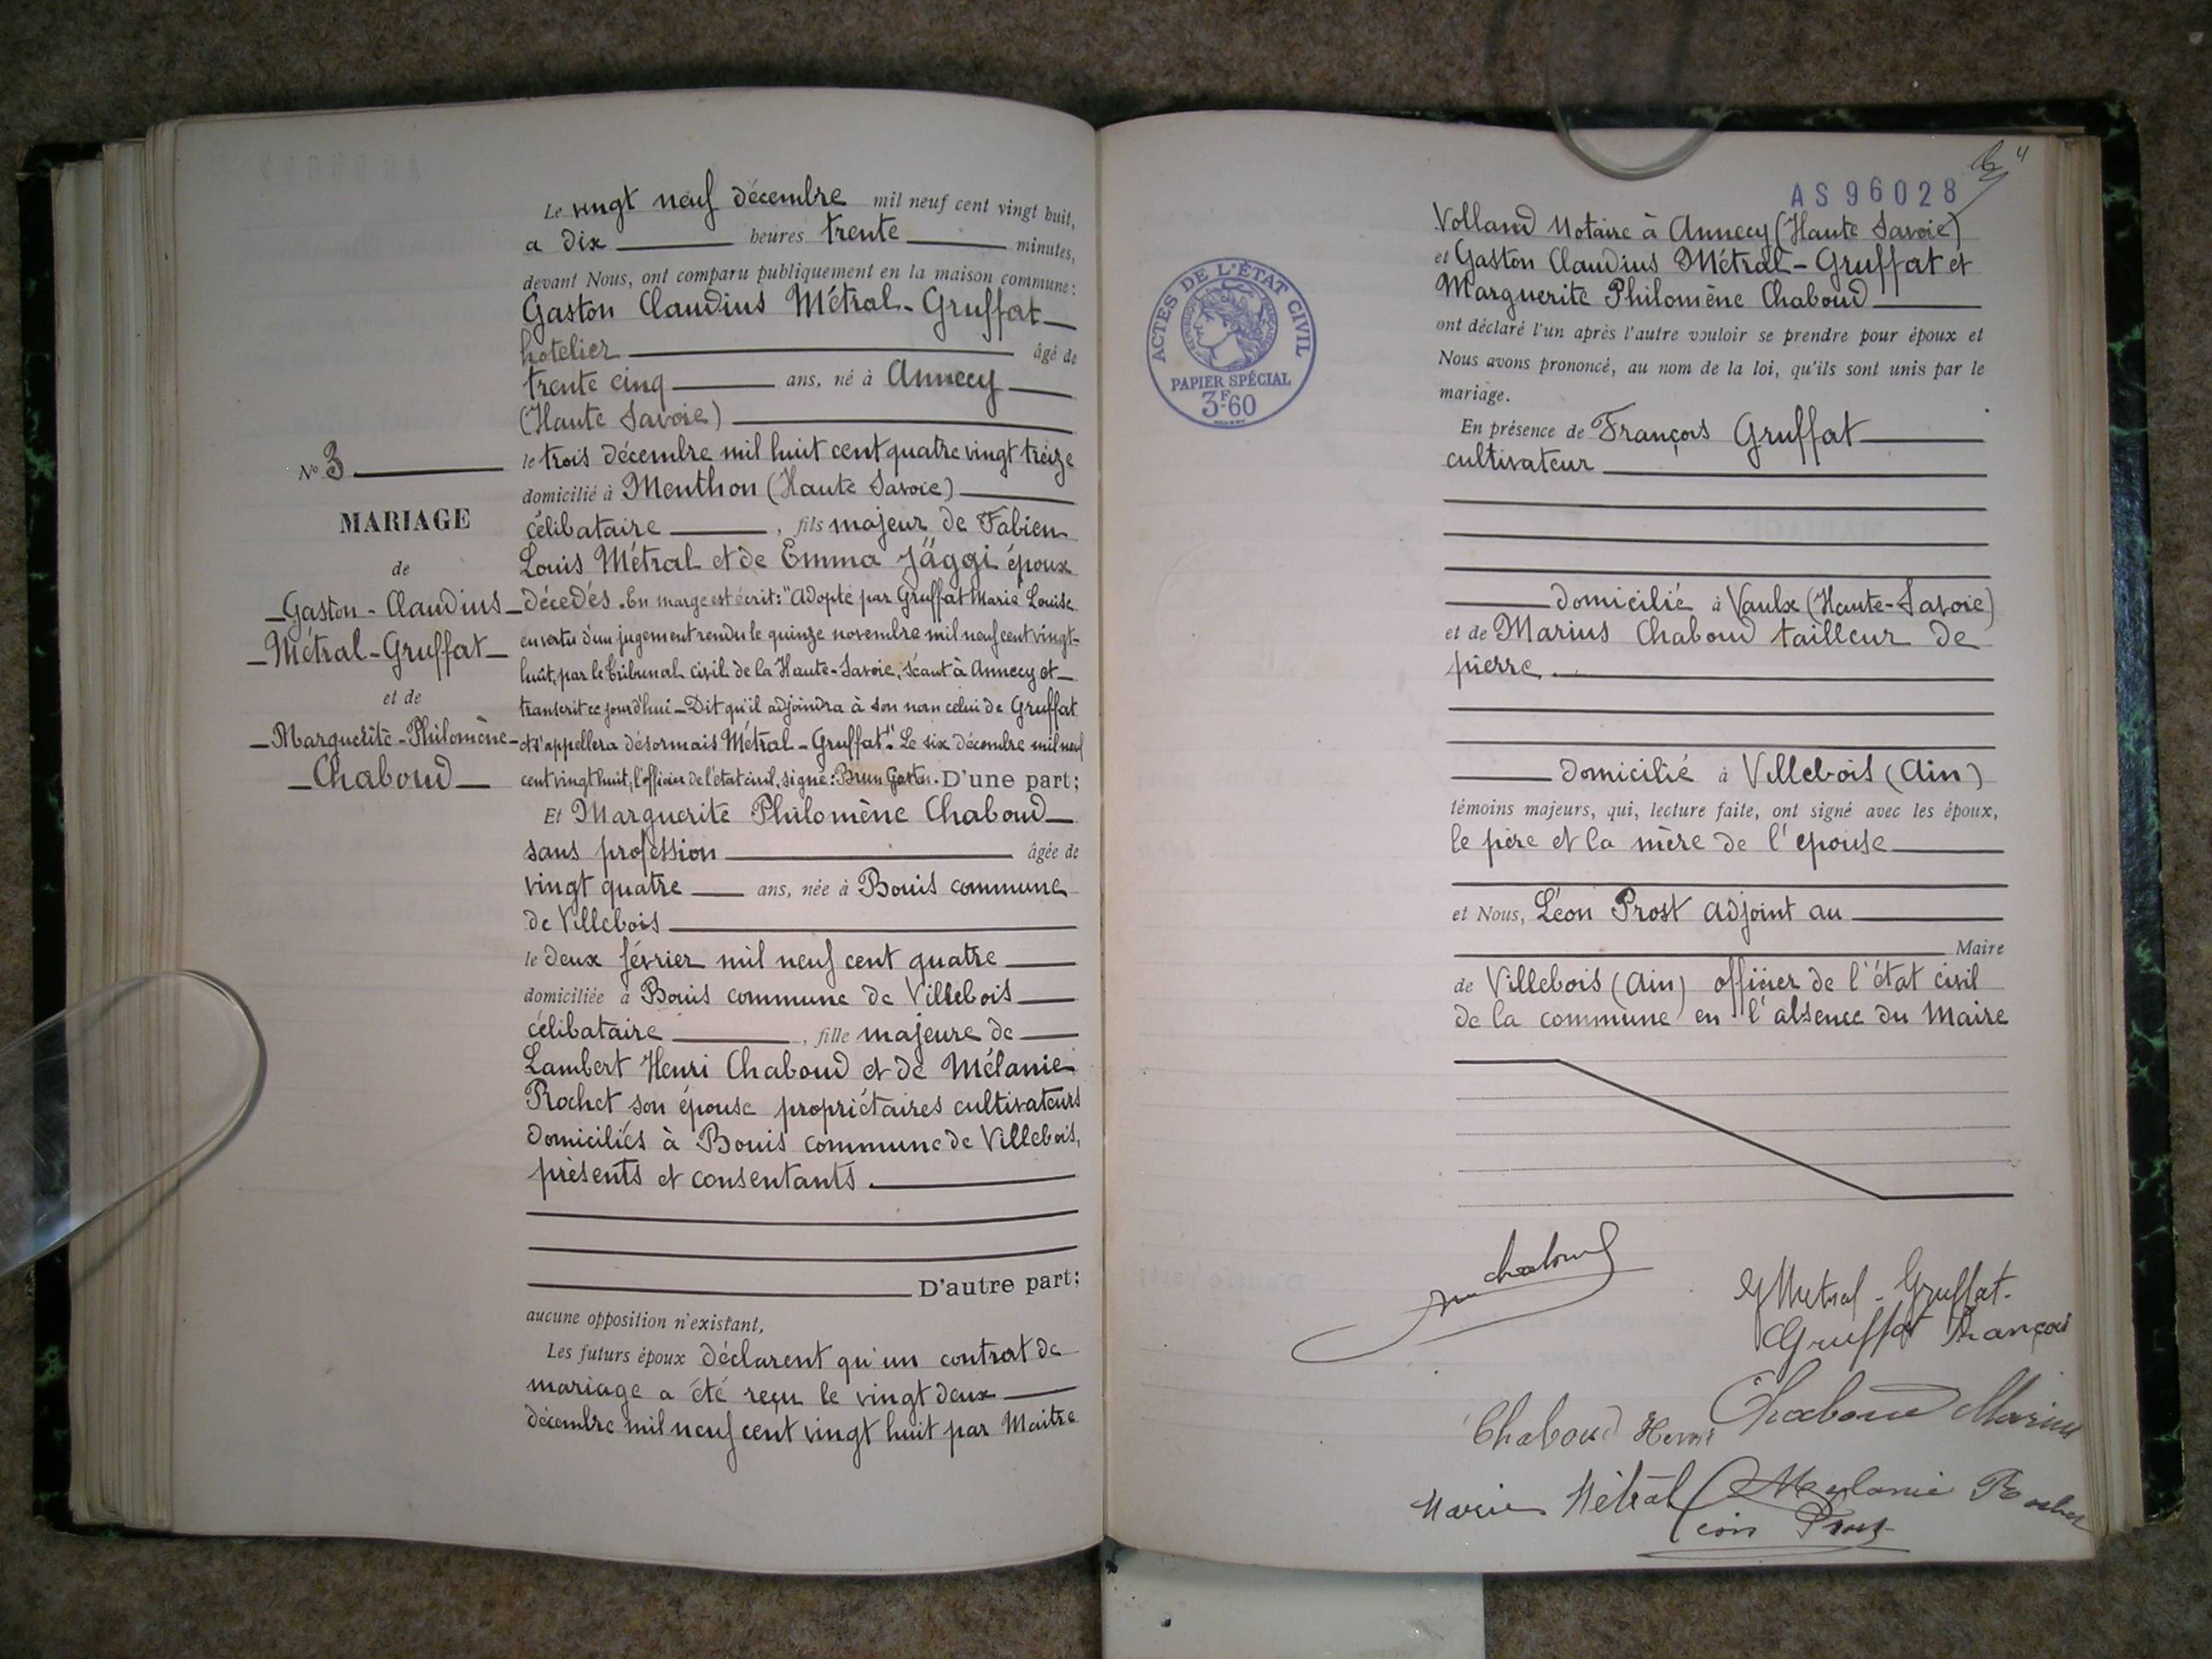 N° 3
MARIAGE
de
Gaston - Claudius
Métral - Gruffat
et de
Marguerite - Philomène
Chaboud
Le vingt neuf décembre mil neuf cent vingt huit,
a dix heures trente minutes,
devant Nous, ont comparu publiquement en la maison commune :
Gaston Claudius Métral - Gruffat
hotelier âgé de
trente cinq ans, né à Annecy
(Haute Savoie)
le trois décembre mil huit cent quatre vingt treize
domicilié à Menthon (Haute Savoie)
célibataire , fils majeur de Fabien
Louis Métral et de Emma Jäggi époux
décédés. En marge est écrit : "Adopté par Gruffat Marie Louise
en vertu d'un jugement rendu le quinze novembre mil neuf cent vingt-
huit, par le tribunal civil de la Haute-Savoie, séant à Annecy et
transcrit ce jourd'hui - Dit qu'il adjoindra à son nom celui de Gruffat
et s'appellera désormais Métral - Gruffat". Le six décembre mil neuf
cent vingt huit, l'officier de l'état civil, signé : Brun Gaston. D'une part ;
Et Marguerite Philomène Chaboud
sans profession âgée de
vingt quatre ans, née à Bouis commune
de Villebois
le deux février mil neuf cent quatre
domiciliée à Bouis commune de Villebois
célibataire , fille majeure de
Lambert Henri Chaboud et de Mélanie
Rochet son épouse propriétaires cultivateurs
domiciliés à Bouis commune de Villebois,
présents et consentants.
D'autre part ;
aucune opposition n'existant,
Les futurs époux déclarent qu'un contrat de
mariage a été reçu le vingt deux
décembre mil neuf cent vingt huit par Maitre
AS 96028
ACTES DE L'ÉTAT CIVIL
PAPIER SPÉCIAL
3F60
Volland Notaire à Annecy (Haute Savoie)
et Gaston Claudius Métral - Gruffat et
Marguerite Philomène Chaboud
ont déclaré l'un après l'autre vouloir se prendre pour époux et
Nous avons prononcé, au nom de la loi, qu'ils sont unis par le
mariage.
En présence de François Gruffat
cultivateur
domicilié à Vaulx (Haute-Savoie)
et de Marius Chaboud tailleur de
pierre.
domicilié à Villebois (Ain)
témoins majeurs, qui, lecture faite, ont signé avec les époux,
le père et la mère de l'epouse
et Nous, Léon Prost adjoint au
Maire
de Villebois (Ain) officier de l'état civil
de la commune en l'absence du Maire
Chaboud
G Metral - Gruffat
Gruffat François
Chaboud Marius
Chaboud Henri
Marie Métral
Mélanie Rochet
Léon Prost